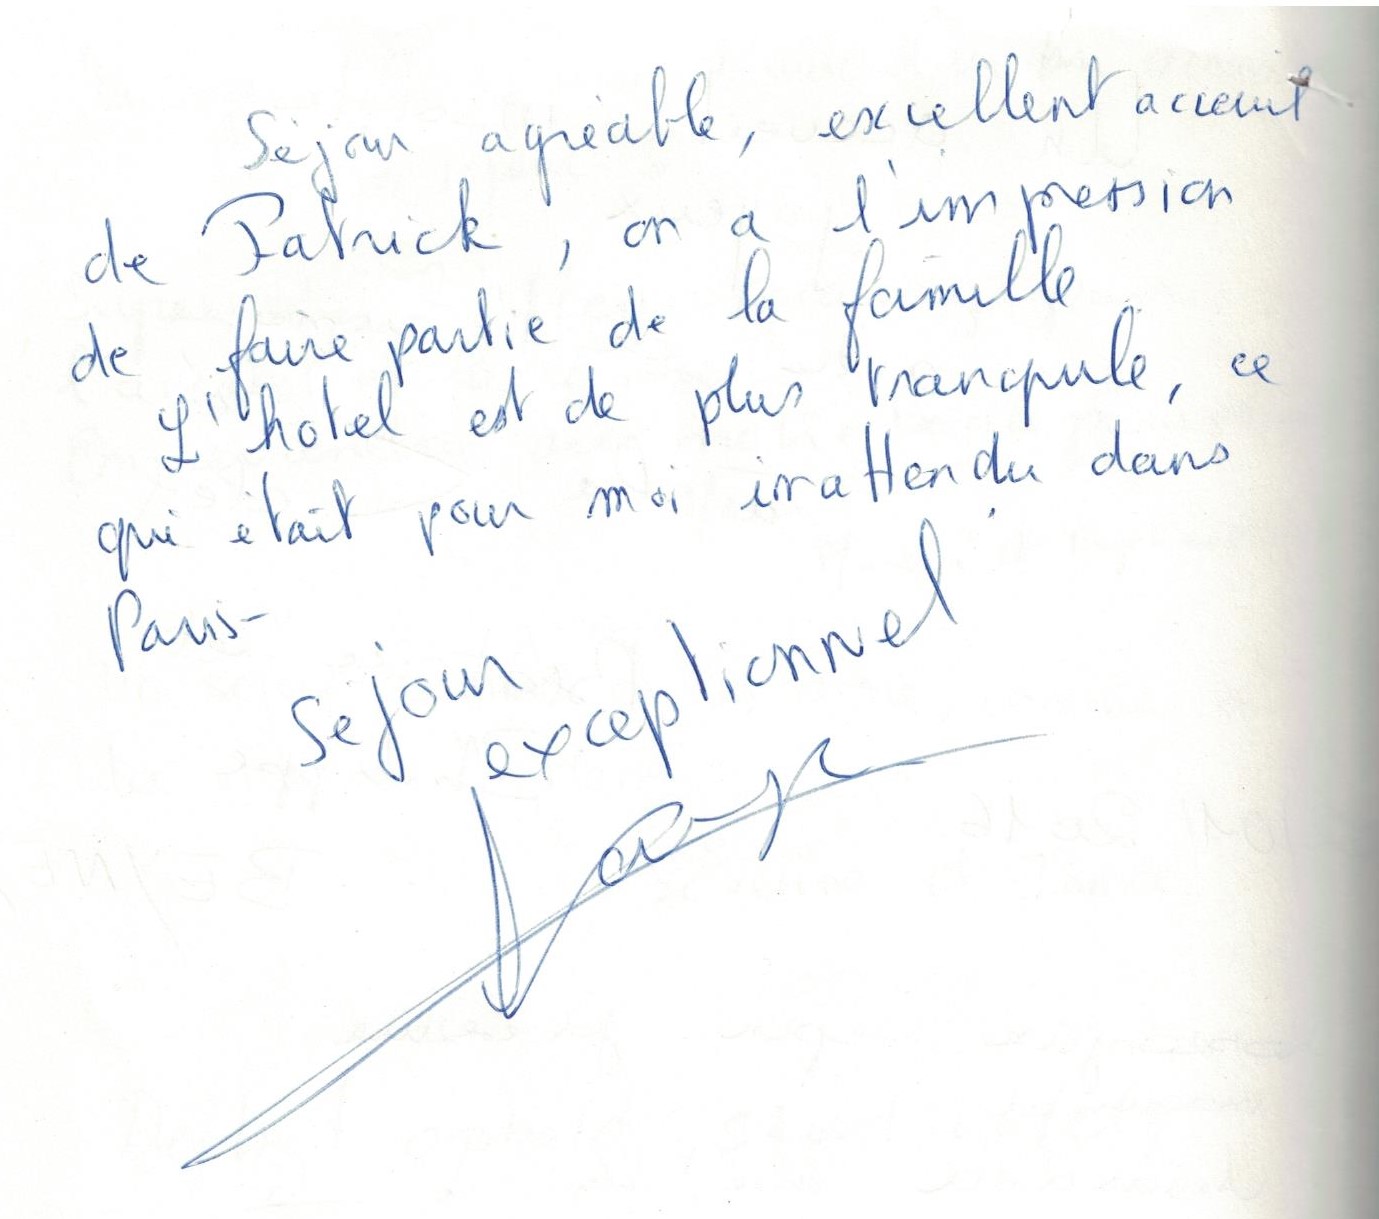 Séjour agréable, excellent accueil
de Patrick, on a l'impression
de faire partie de la famille
L'hotel est de plus tranquile, ce
qui était pour moi inattendu dans
Paris-
Séjour
exceptionnel